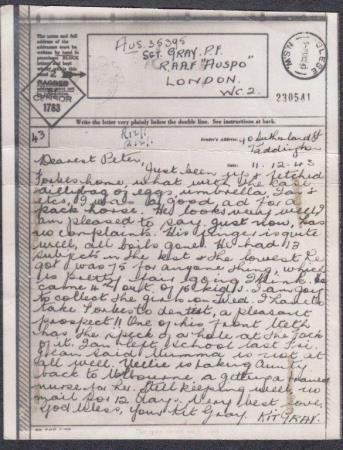 The name and full
address of the
addressee must be
written by hand in
BLOCK
letters
PASSED
CENSOR
1783
AUS.35395
SGT. GRAY. P.F.
R.A.A.F "AUSPO"
LONDON.
W.C.2.
GLEBE
N.S.W
230541
Write the letter very plainly below the double line. See instructions at back.
43
Sender's Address:
40 Sutherland St
Paddington
11-12-43
Dearest Peter,
Just been up & fetched
Forbes home, what with the cake
dillybag eggs, umbrella, Ian's
etcs, I was a good ad for a
pack horse. He looks very well I
am pleased to say, just now, has
no complaints. His finger is quite
well, all boils gone. He had 13
subjects in the test & the lowest he
got was 75 for anyone thing, which
is pretty fair going I think. He
came 4th out of I am going
to collect the girls on Wed. I have to
take Forbes to dentist, a pleasant
prospect!! One of his front teeth
has the speck of a hole at the back
of it. Ian left school last Fri.
Jean said Mumma is not at
all well. Nellie is taking Aunty
back to Melbourne & getting a trained
nurse for her. Still keeping well, no
mail for 12 days. Very best love,
God bless, your Kit Gray. KIT GRAY.